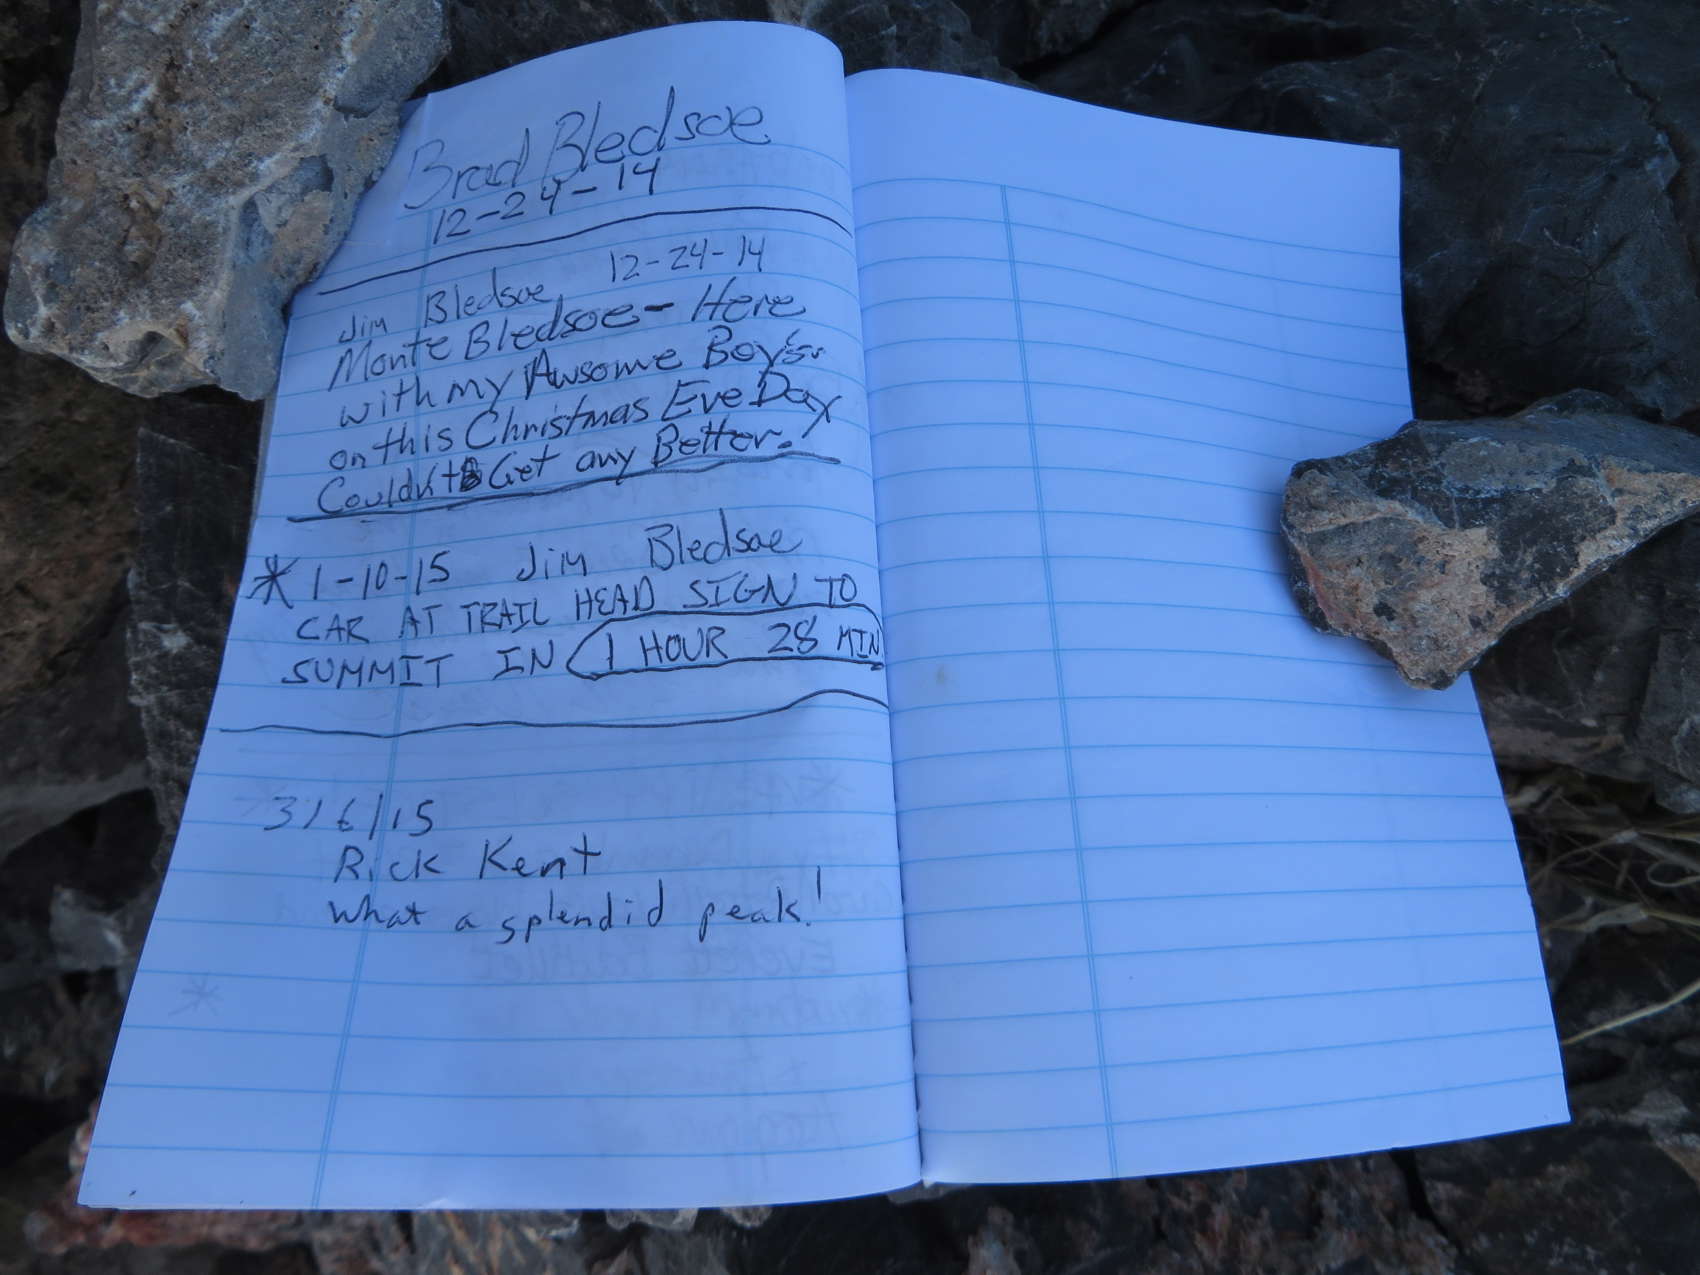 Brad Bledsoe
12-24-14
Jim Bledsoe 12-24-14
Monte Bledsoe - Here
with my Awsome Boy's.
on this Christmas Eve Day
Couldn't Get any Better.
* 1-10-15 Jim Bledsoe
CAR AT TRAIL HEAD SIGN TO
SUMMIT IN 1 HOUR 28 MIN.
3/6/15
Rick Kent
What a splendid peak!